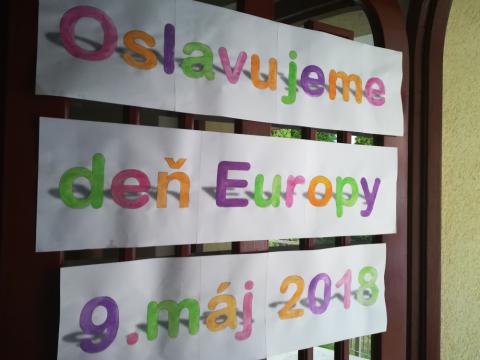 Oslavujeme
deň Európy
9.máj 2018